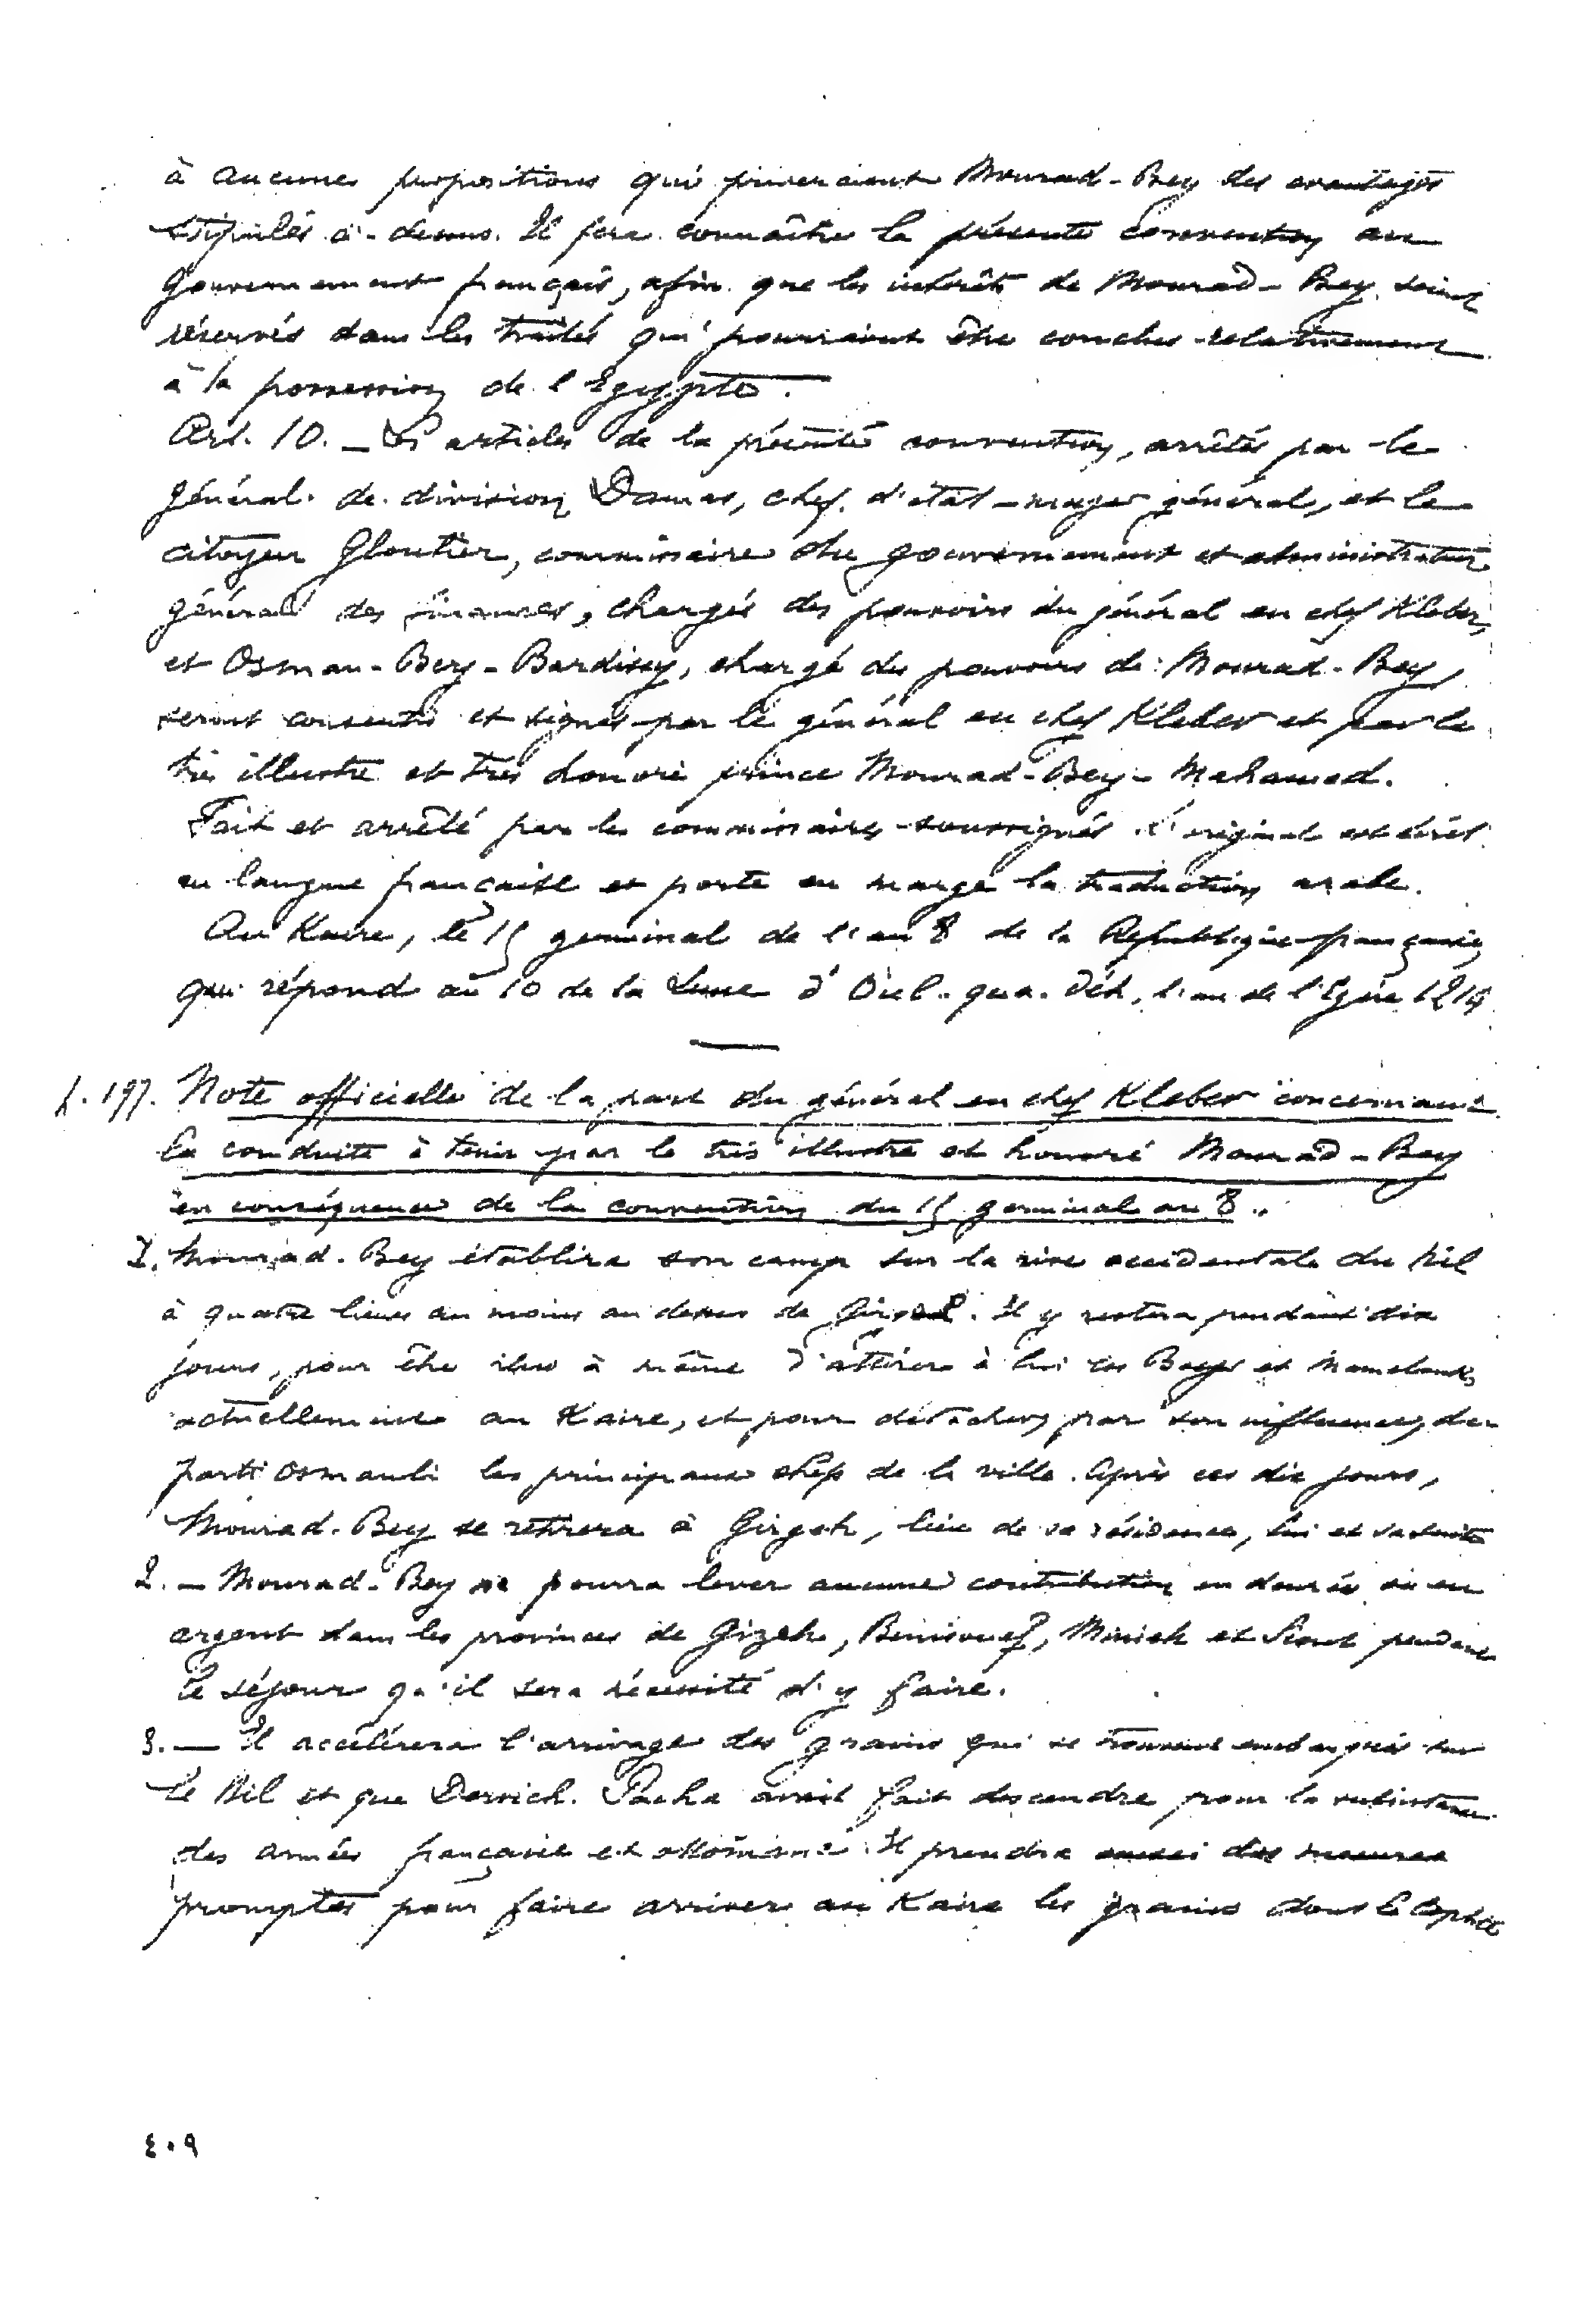 à aucunes propositions qui priveraient Mourad-Bey des avantages
stipulés ci-dessus. Il fera connaître la présente convention au
gouvernement français, afin que les intérêts de Mourad-Bey soient
réservés dans les traités qui pourraient être conclus relativement
à la possession de l'Egypte.
Art. 10. — Les articles de la présente convention, arrêtés par le
général de division Damas, chef d'état-major général, et le
citoyen Gloutier, commissaire du gouvernement et administrateur
général des finances, chargés des pouvoirs du général en chef Kleber,
et Osman-Bey-Bardissy, chargé des pouvoirs de Mourad-Bey,
seront consentis et signés par le général en chef Kleber et par le
très illustre et très honoré prince Mourad-Bey-Mohamed.
Fait et arrêté par les commissaires soussignés. L'original est
en langue française et porte en marge la traduction arabe.
Au Kaire, le 15 germinal de l'an 8 de la République française,
qui répond au 10 de la Lune d'Ôul-qua-déh, l'an de l'Egire 1214
p. 197. Note officielle de la part du général en chef Kleber concernant
la conduite à tenir par le très illustre et honoré Mourad-Bey
en conséquence de la convention du 15 germinal an 8.
1. Mourad-Bey établira son camp sur la rive occidentale du Nil
à quatre lieues au moins au dessus de. Il y restera pendant dix
jours, pour être à même d'attirer à lui les Beys et Mamelouks
actuellement au Kaire, et pour détacher, par son influence, du
parti osmanli les principaux chefs de la ville. Après ces dix jours,
Mourad-Bey se retirera à Girgeh, lieu de sa résidence, lui et sa suite
2. — Mourad-Bey ne pourra lever aucune contribution en denrées ou en
argent dans les provinces de Gizeh, Benisouef, Minieh et Siout pendant
le séjour qu'il sera nécessité d'y faire.
3. — Il accélérera l'arrivage des grains qui se trouvent embarqués sur
le Nil et que Dervich-Pacha avait fait descendre pour la subsistance
des armées française et ottomane. Il prendra aussi des mesures
promptes pour faire arriver au Kaire les grains dont le
٤٠٩